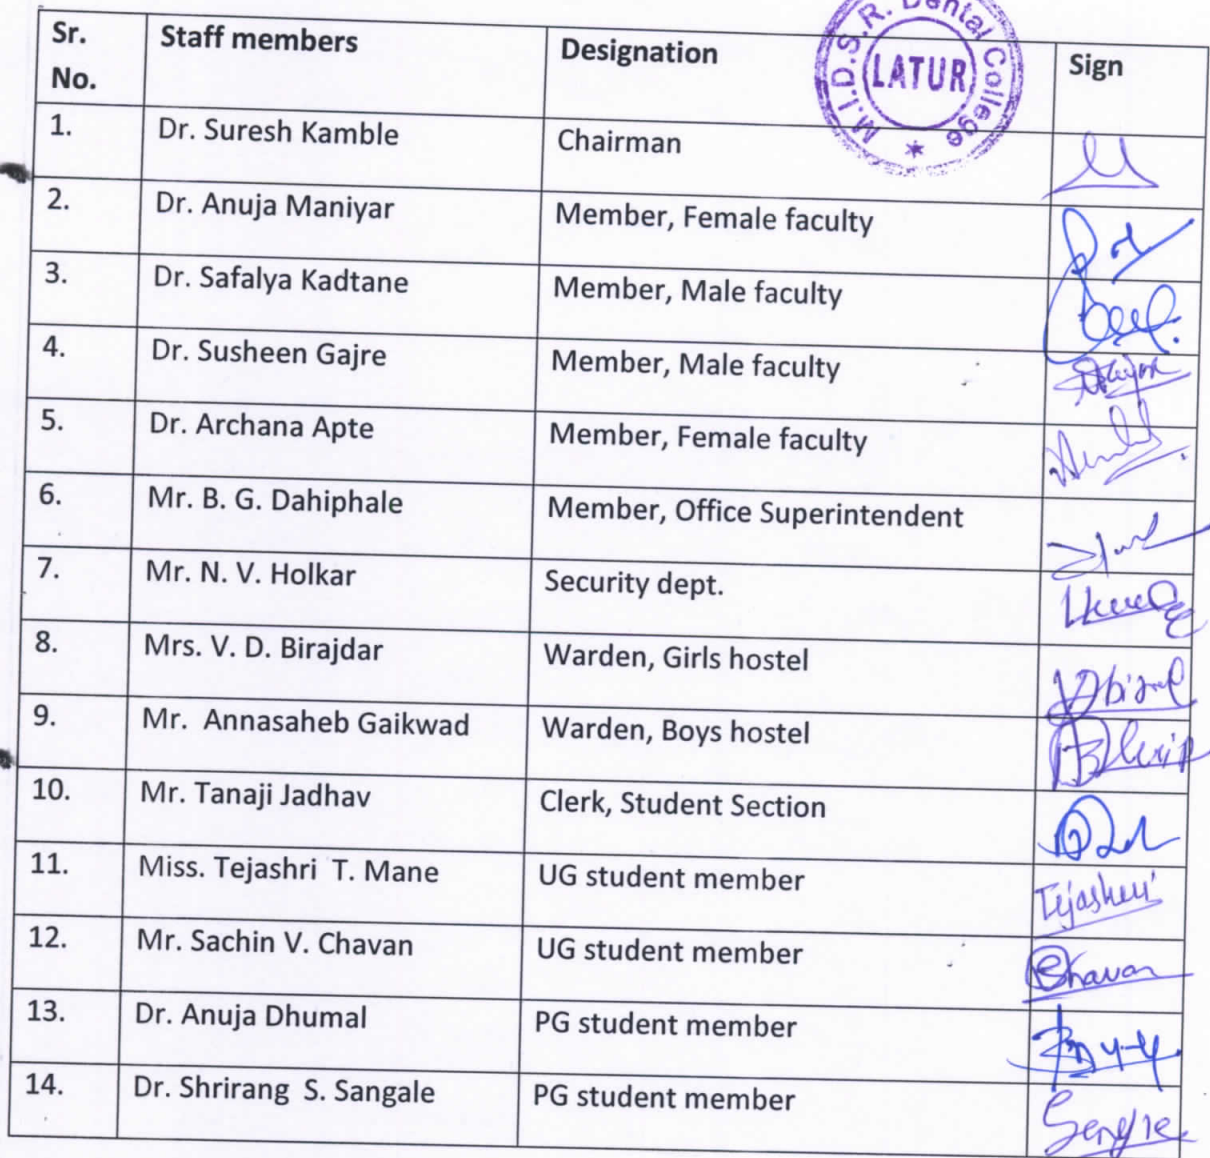 M.I.D.S.R. Dental College
LATUR
Sr. No. Staff members Designation Sign
1. Dr. Suresh Kamble Chairman
2. Dr. Anuja Maniyar Member, Female faculty
3. Dr. Safalya Kadtane Member, Male faculty
4. Dr. Susheen Gajre Member, Male faculty
5. Dr. Archana Apte Member, Female faculty
6. Mr. B. G. Dahiphale Member, Office Superintendent
7. Mr. N. V. Holkar Security dept.
8. Mrs. V. D. Birajdar Warden, Girls hostel
9. Mr. Annasaheb Gaikwad Warden, Boys hostel
10. Mr. Tanaji Jadhav Clerk, Student Section
11. Miss. Tejashri T. Mane UG student member
12. Mr. Sachin V. Chavan UG student member Chavan
13. Dr. Anuja Dhumal PG student member
14. Dr. Shrirang S. Sangale PG student member